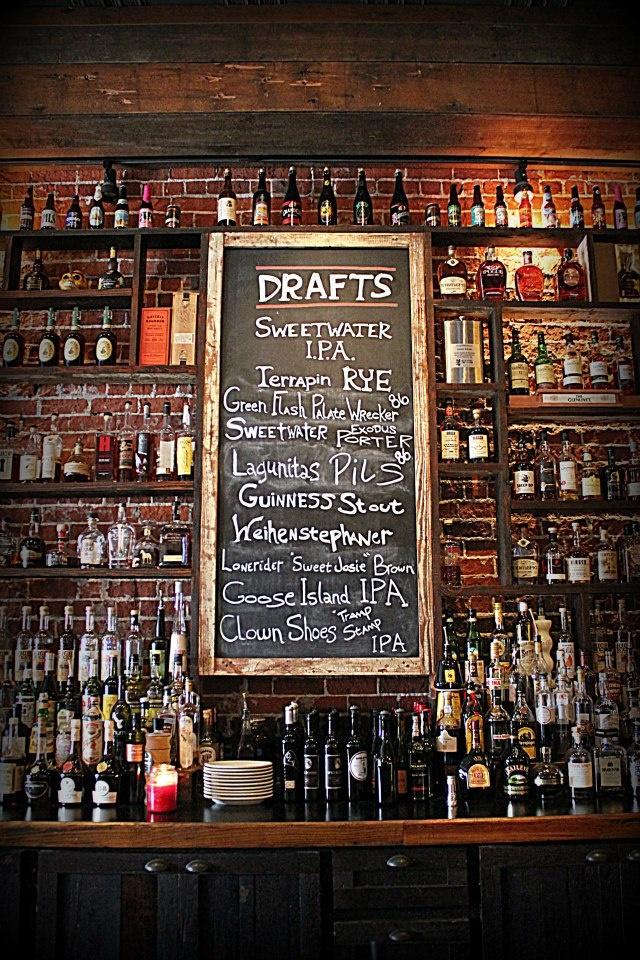 DRAFTS
SWEETWATER
I.P.A.
Terrapin RYE
Green Flash Palate Wrecker
SWEETWATER EXODUS PORTER
Lagunitas PiLS
GUINNESS Stout
Weihenstephaner
Lonerider "Sweet Josie" Brown
Goose Island IPA
Clown Shoes "Tramp Stamp"
IPA